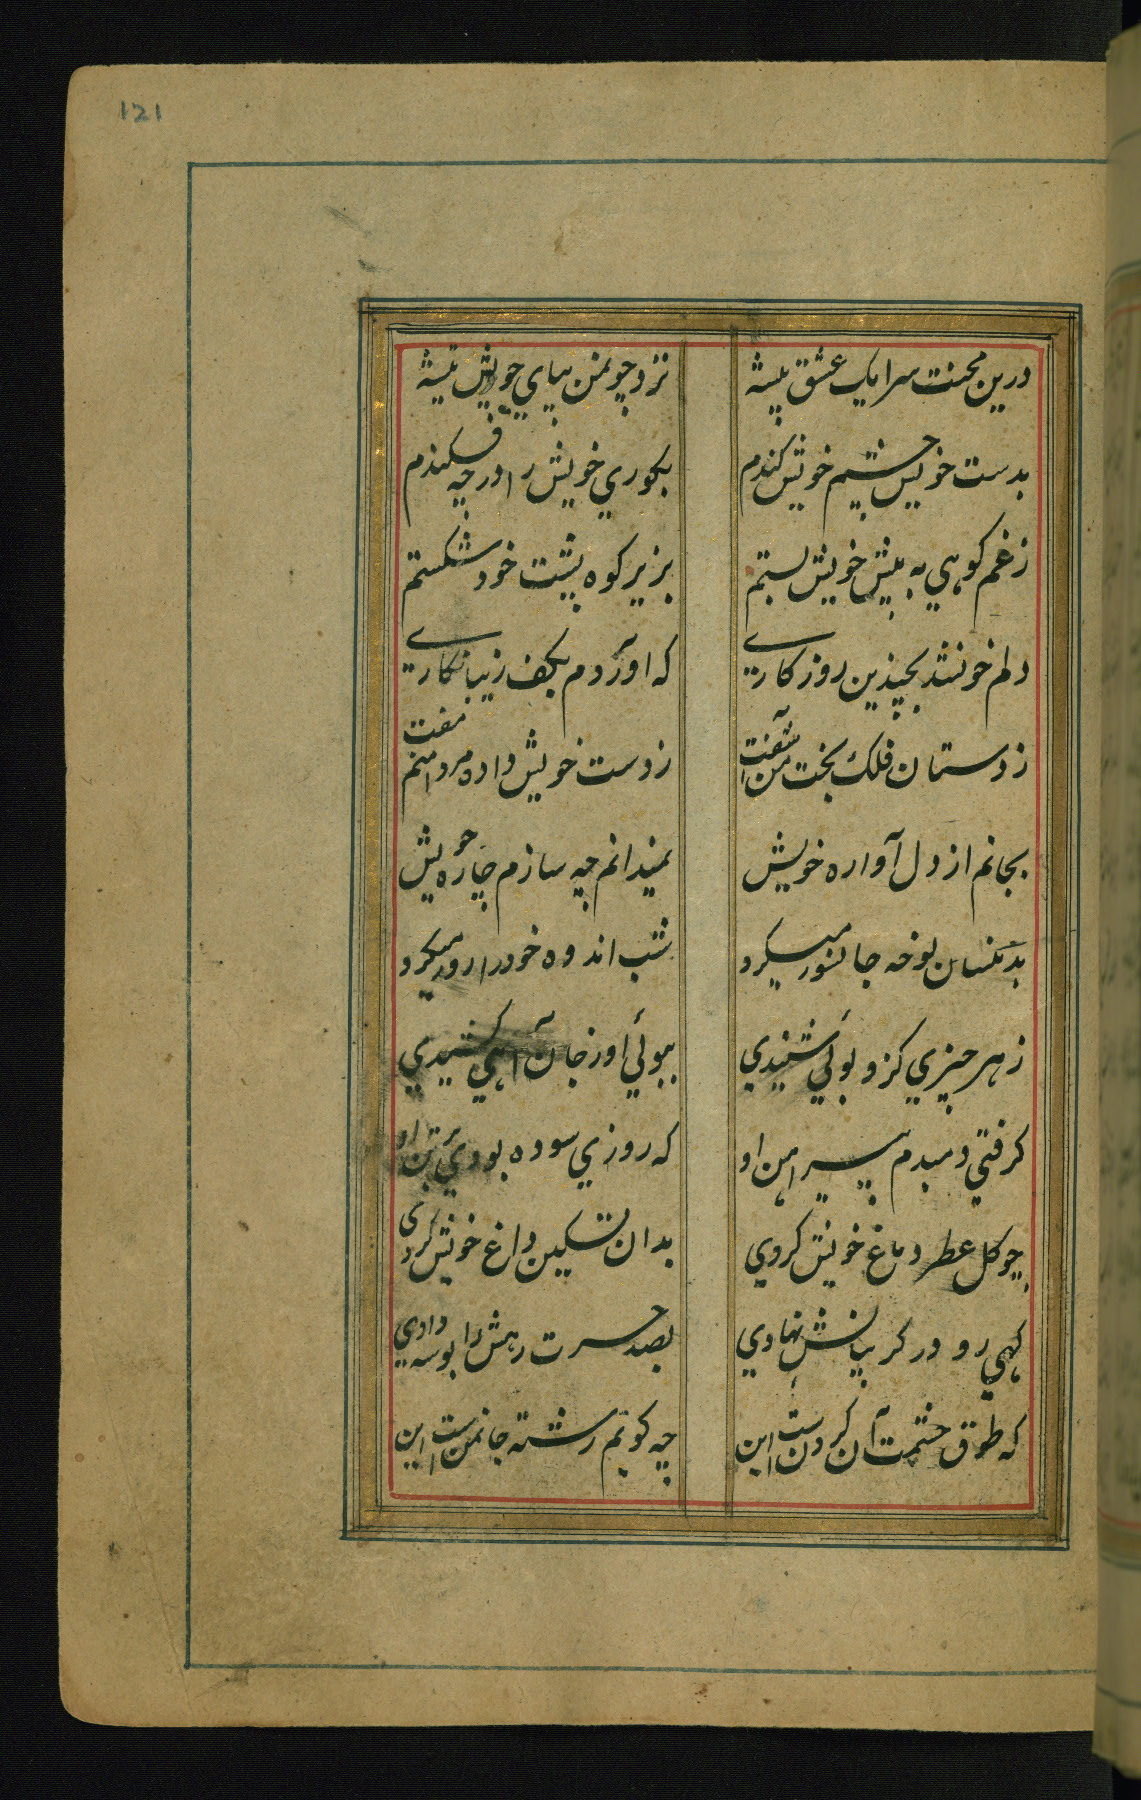 121
درین محنت سرا یک عشق پیشه
نزد چو من بپای خویش تیشه
بدست خویش چشم خویش کندم
بکوری خویش را در چه فکندم
ز غم کوهی به پیش خویش بستم
بزیر کوه پشت خود شکستم
دلم خون شد بچندین روزکاری
که اوردم بکف زیبا نکاری
ز دستان فلک بخت من آشفت
ز دست خویش دادم دامنم مفت
بجانم از دل آواره خویش
نمیدانم چه سازم چاره خویش
بدینسان نوحه جانسوز میکرد
شب اندوه خود را روز میکرد
ز هر چیزی کزو بوئی شنیدی
ببوئی او ز جان آهی کشیدی
کرفتی دمبدم پیراهن او
که روزی سوده بودی بر تن او
چو کل عطر دماغ خویش کردی
بدان تسکین داغ خویش کردی
کهی رو در کریبانش نهادی
بصد حسرت رهش را بوسه دادی
که طوق حشمت آن کردنست این
چه کویم رشته جان منست این